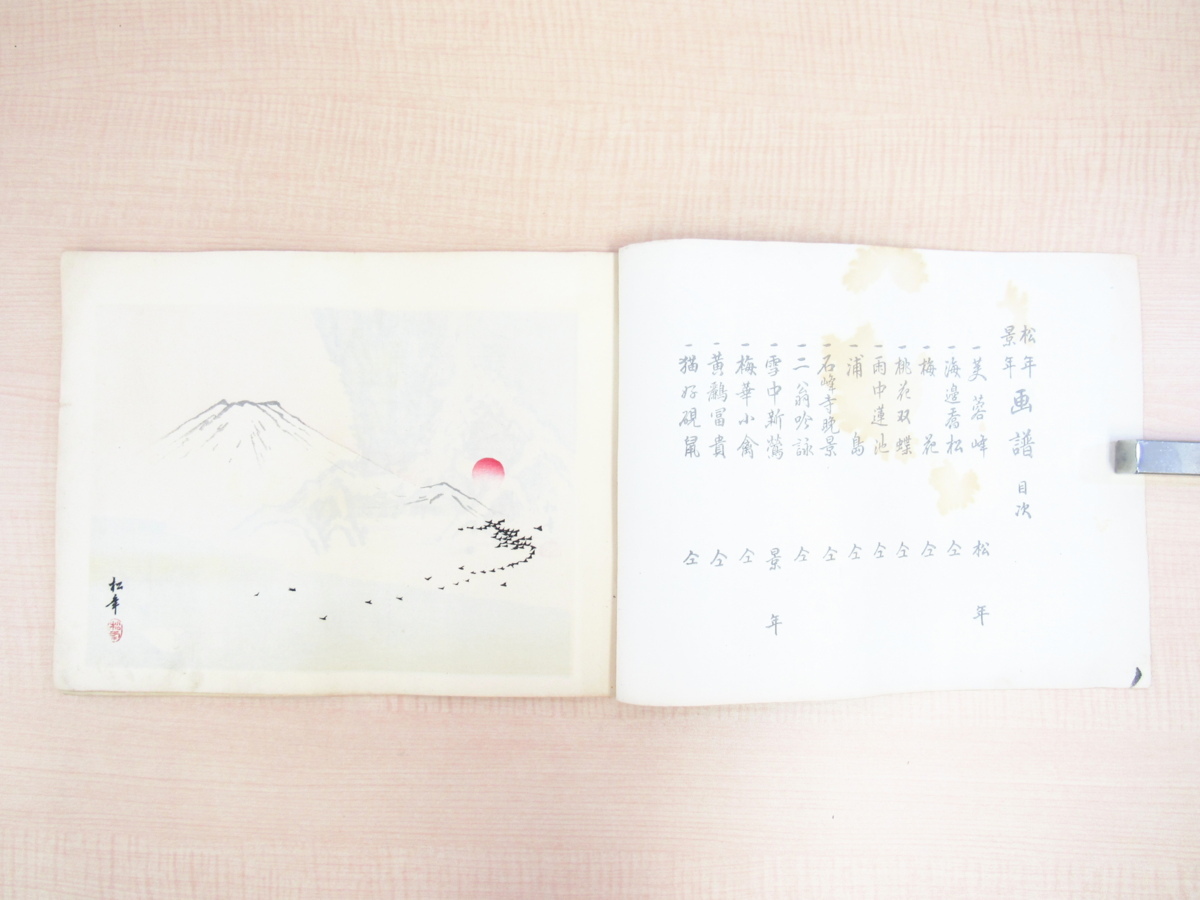 松年
景年
画譜 目次
一 芙蓉峰 松年
一 海邉喬松 仝
一 梅花 仝
一 桃花双蝶 仝
一 雨中蓮池 仝
一 浦島 仝
一 石峰寺晩景 仝
一 二翁吟詠 仝
一 雪中新鶯 景年
一 梅華小禽 仝
一 黄鸝冨貴 仝
一 猫好硯鼠 仝
松年